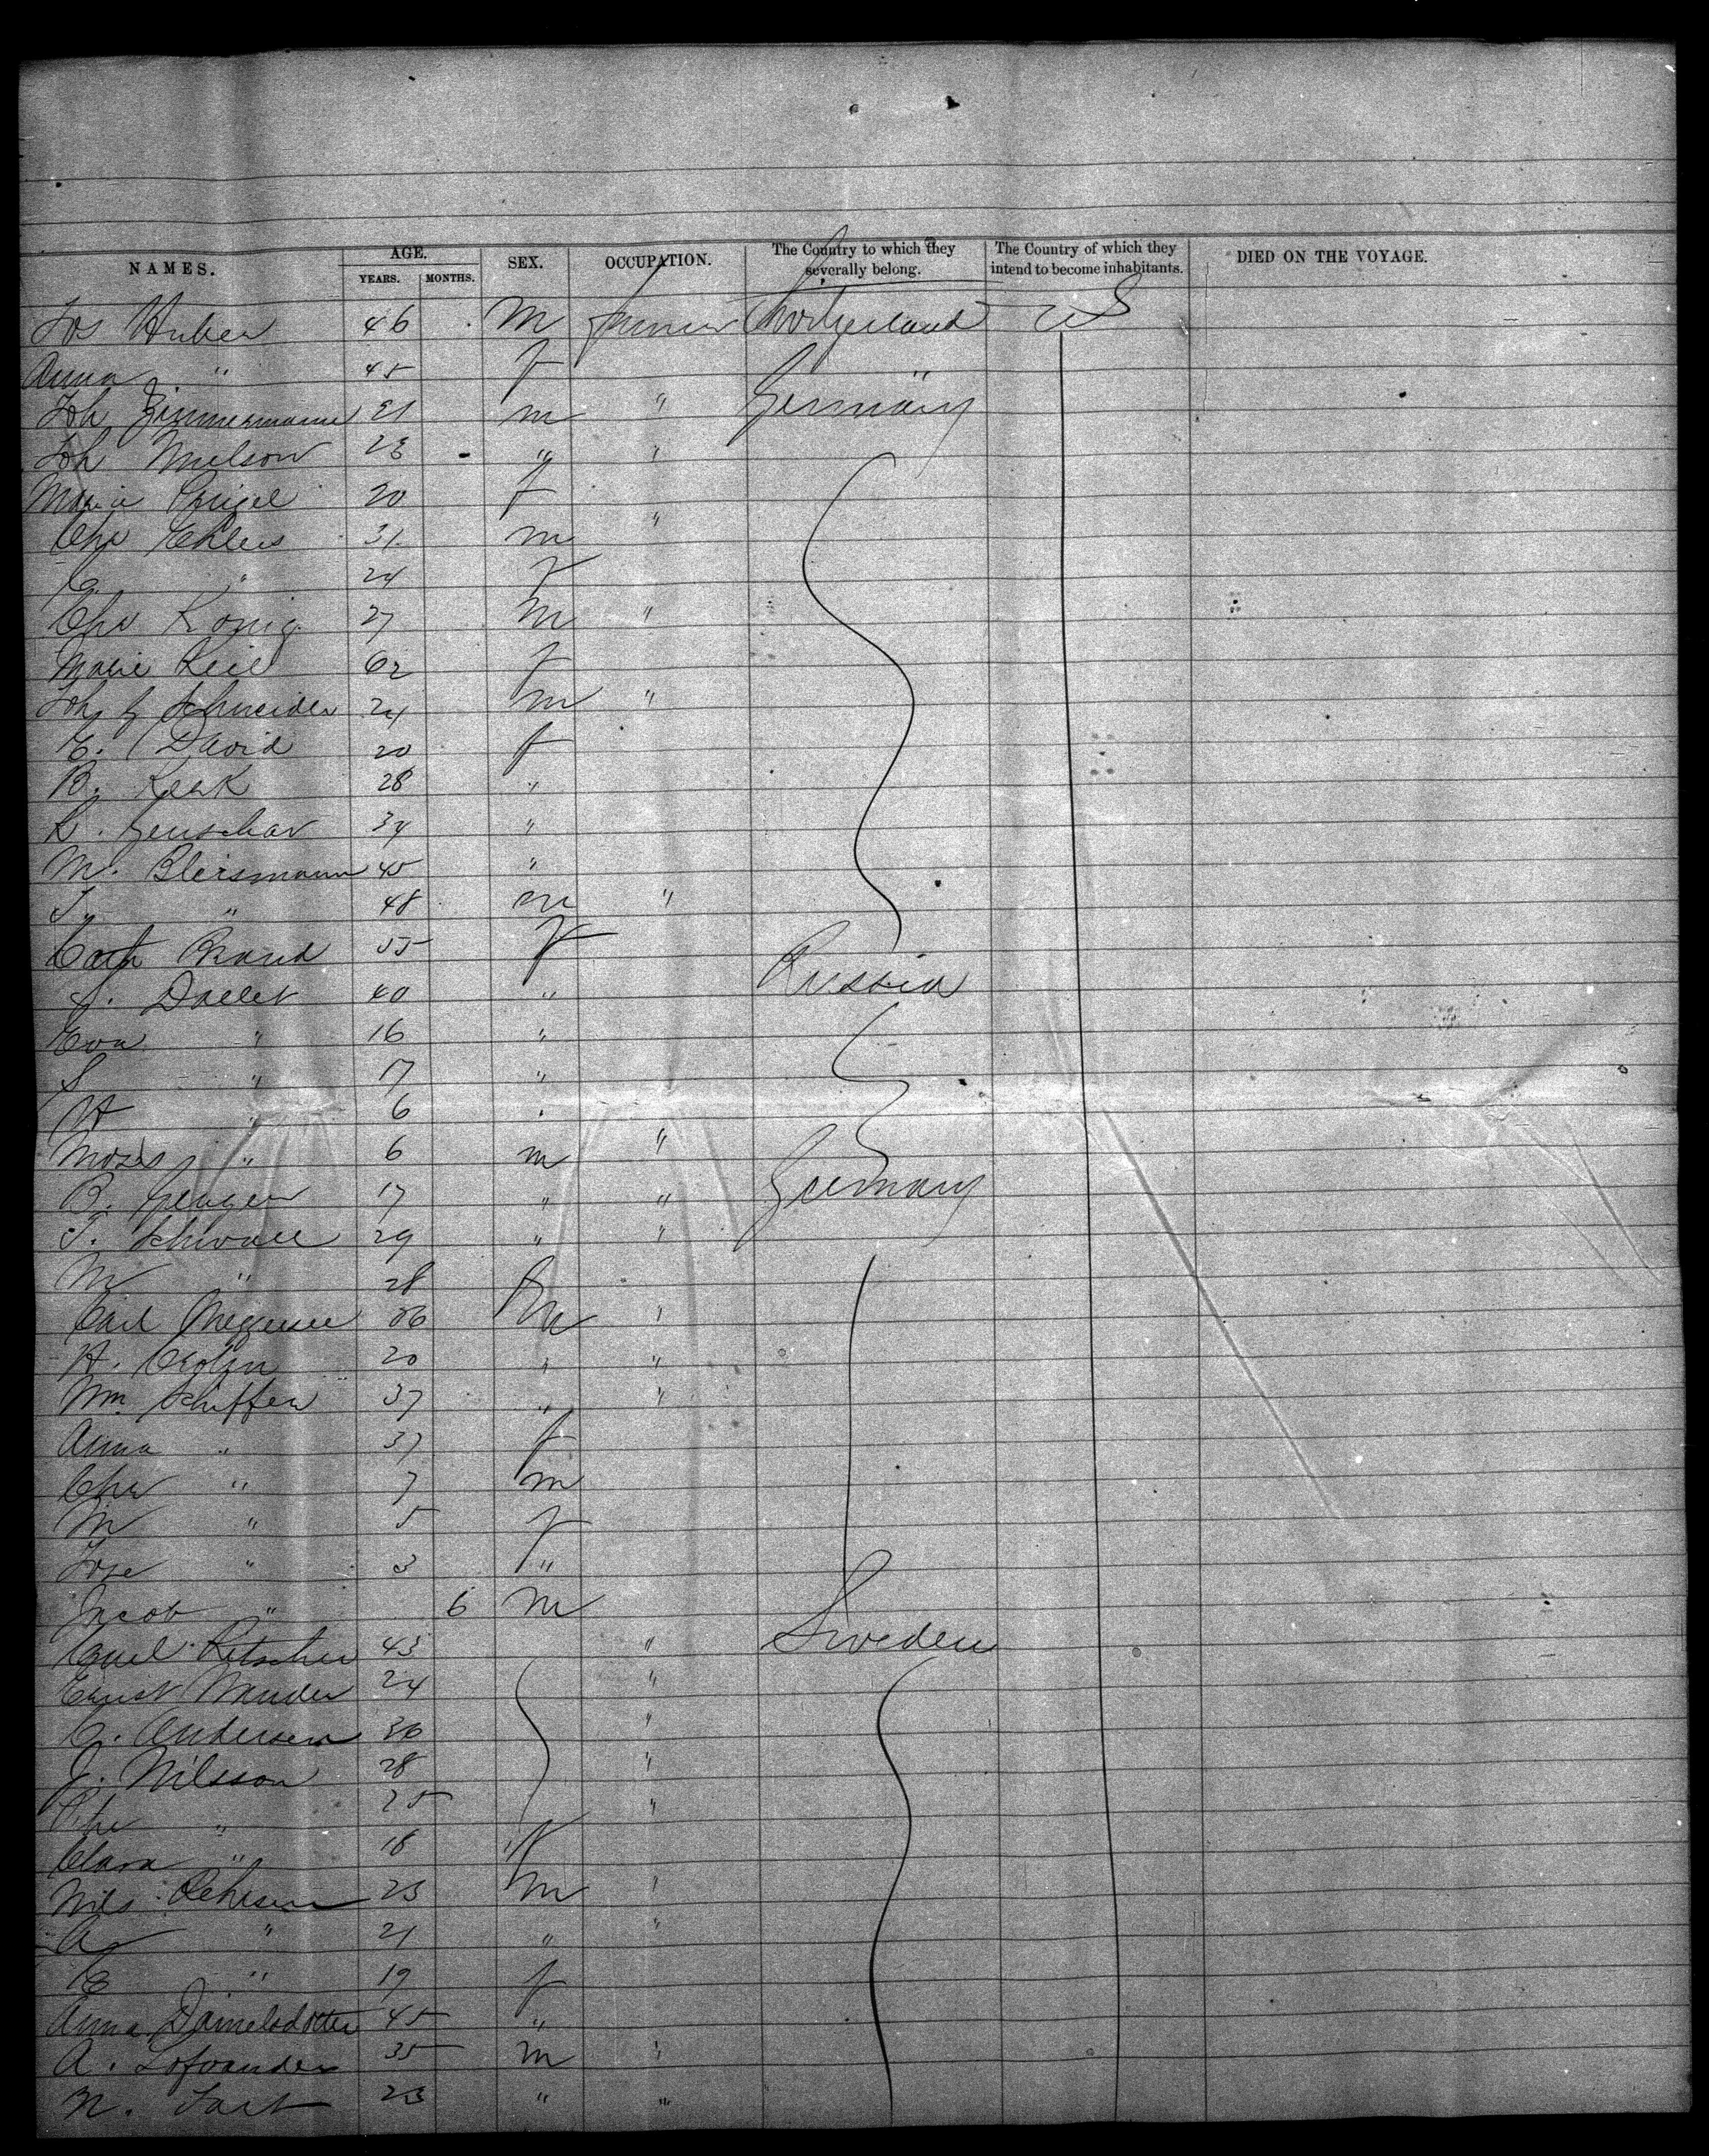 NAMES. AGE. YEARS. MONTHS. SEX. OCCUPATION. The Country to which they severally belong. The Country of which they intend to become inhabitants. DIED ON THE VOYAGE.
Jos Huber 46 M Farmer Switzerland US
Anna " 45 f "
Joh Zimmermann 21 m " Germany
Joh 28 " "
Maria 20 f
Chr Ehlers 31 m "
C. " 24 f
Chr Konig 27 m "
Marie Keil 62 f
Joh Schneider 24 m "
E. David 20 f
B. 28 "
K. 34 "
M. Bleismann 45 "
J. " 48 m "
Cath Brand 55 f
J. 40 " Russia
Eva " 16 "
S " 17 "
H " 6 "
Moses " 6 m "
B. 17 " " Germany
J. Schwall 29 " "
M " 28 f
Carl 36 m "
H. 20 " "
Wm Schiffer 37 " "
Anna " 37 f
Chr " 7 m
M " 5 f
" 3 "
Jacob " 6 m
43 " Sweden
Ernst 24 "
C. Andersen 36 "
J. Nilsson 28 "
Chr " 25 "
Clara " 18 f
Nils 23 m "
A " 21 " "
E " 19 f
Anna Danielsdotter 45 "
A. Lofvander 35 m "
N. 23 " "